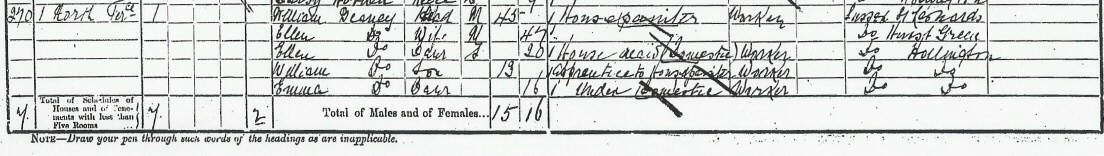 270 1 North Terce 1 William Deaney Head M 45 1 House painter Worker Sussex St Leonards
Ellen Do Wife M 47 Do Hurst Green
Ellen Do Daur S 20 1 House maid (Domestic) Worker Do Hollington
William Do Son 19 1 Apprentice to House painter Worker Do Do
Emma Do Daur 16 1 Under Domestic Worker Do Do
7 Total of Schedules of Houses and of Tenements with less than Five Rooms 7 2 Total of Males and of Females... 15 16
NOTE—Draw your pen through such words of the headings as are inapplicable.